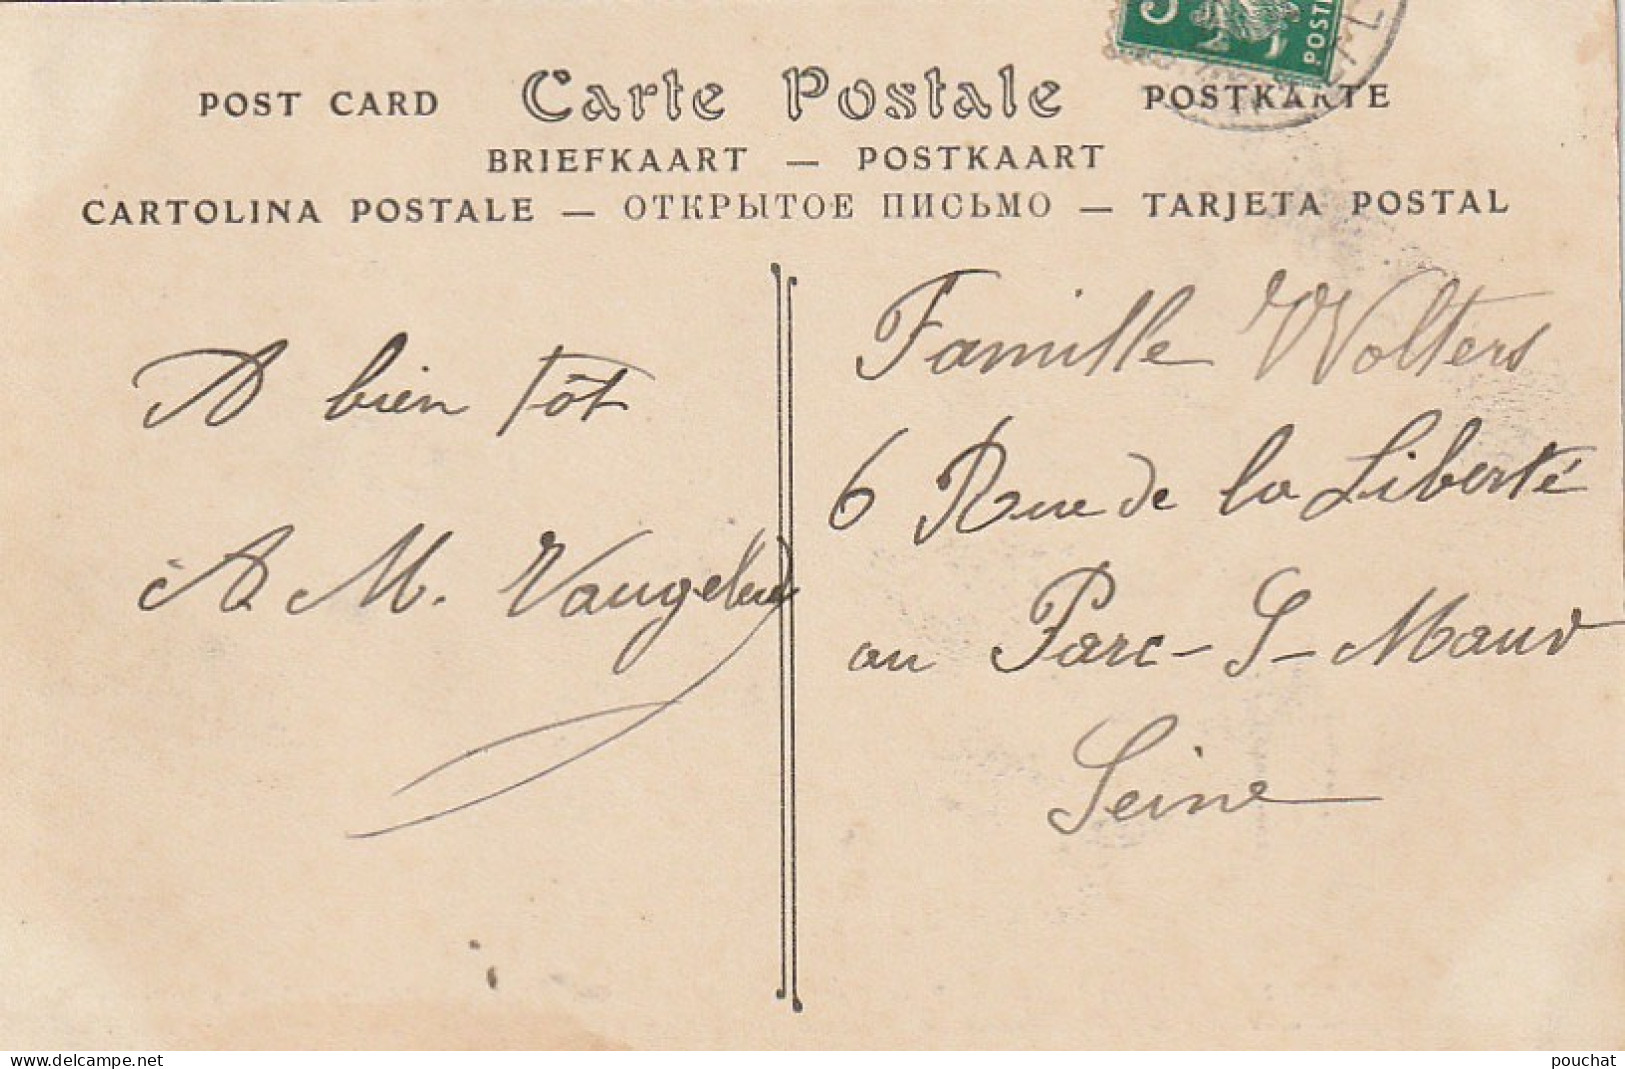 POST CARD Carte Postale POSTKARTE
BRIEFKAART — POSTKAART
CARTOLINA POSTALE — ОТКРЫТОЕ ПИСЬМО — TARJETA POSTAL
POST
A bien tôt
A. M.
Famille Wolters
6 Rue de la Liberté
au Parc-S-Maur
Seine
www.delcampe.net
pouchat